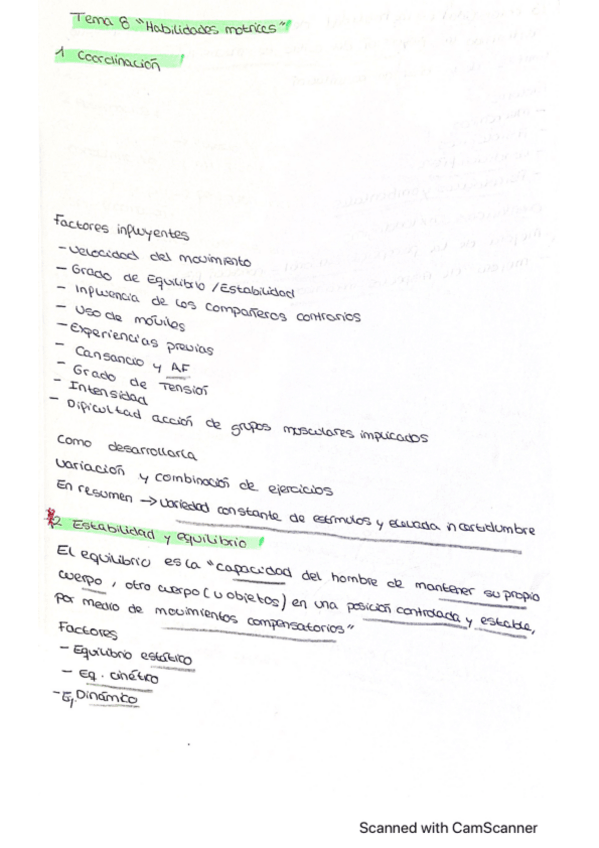 Tema 8 "Habilidades motrices"
1 Coordinación
Factores influyentes
- Velocidad del movimiento
- Grado de Equilibrio / Estabilidad
- Influencia de los compañeros contrarios
- Uso de móviles
- Experiencias previas
- Cansancio y AF
- Grado de Tensión
- Intensidad
- Dificultad acción de grupos musculares implicados
Como desarrollarla
Variación y combinación de ejercicios
En resumen → variedad constante de estímulos y elevada incertidumbre
2 Estabilidad y equilibrio
El equilibrio es la "capacidad del hombre de mantener su propio
cuerpo, otro cuerpo (u objetos) en una posición controlada y estable,
por medio de movimientos compensatorios"
Factores
- Equilibrio estático
- Eq. cinético
- Eq. Dinámico
Scanned with CamScanner